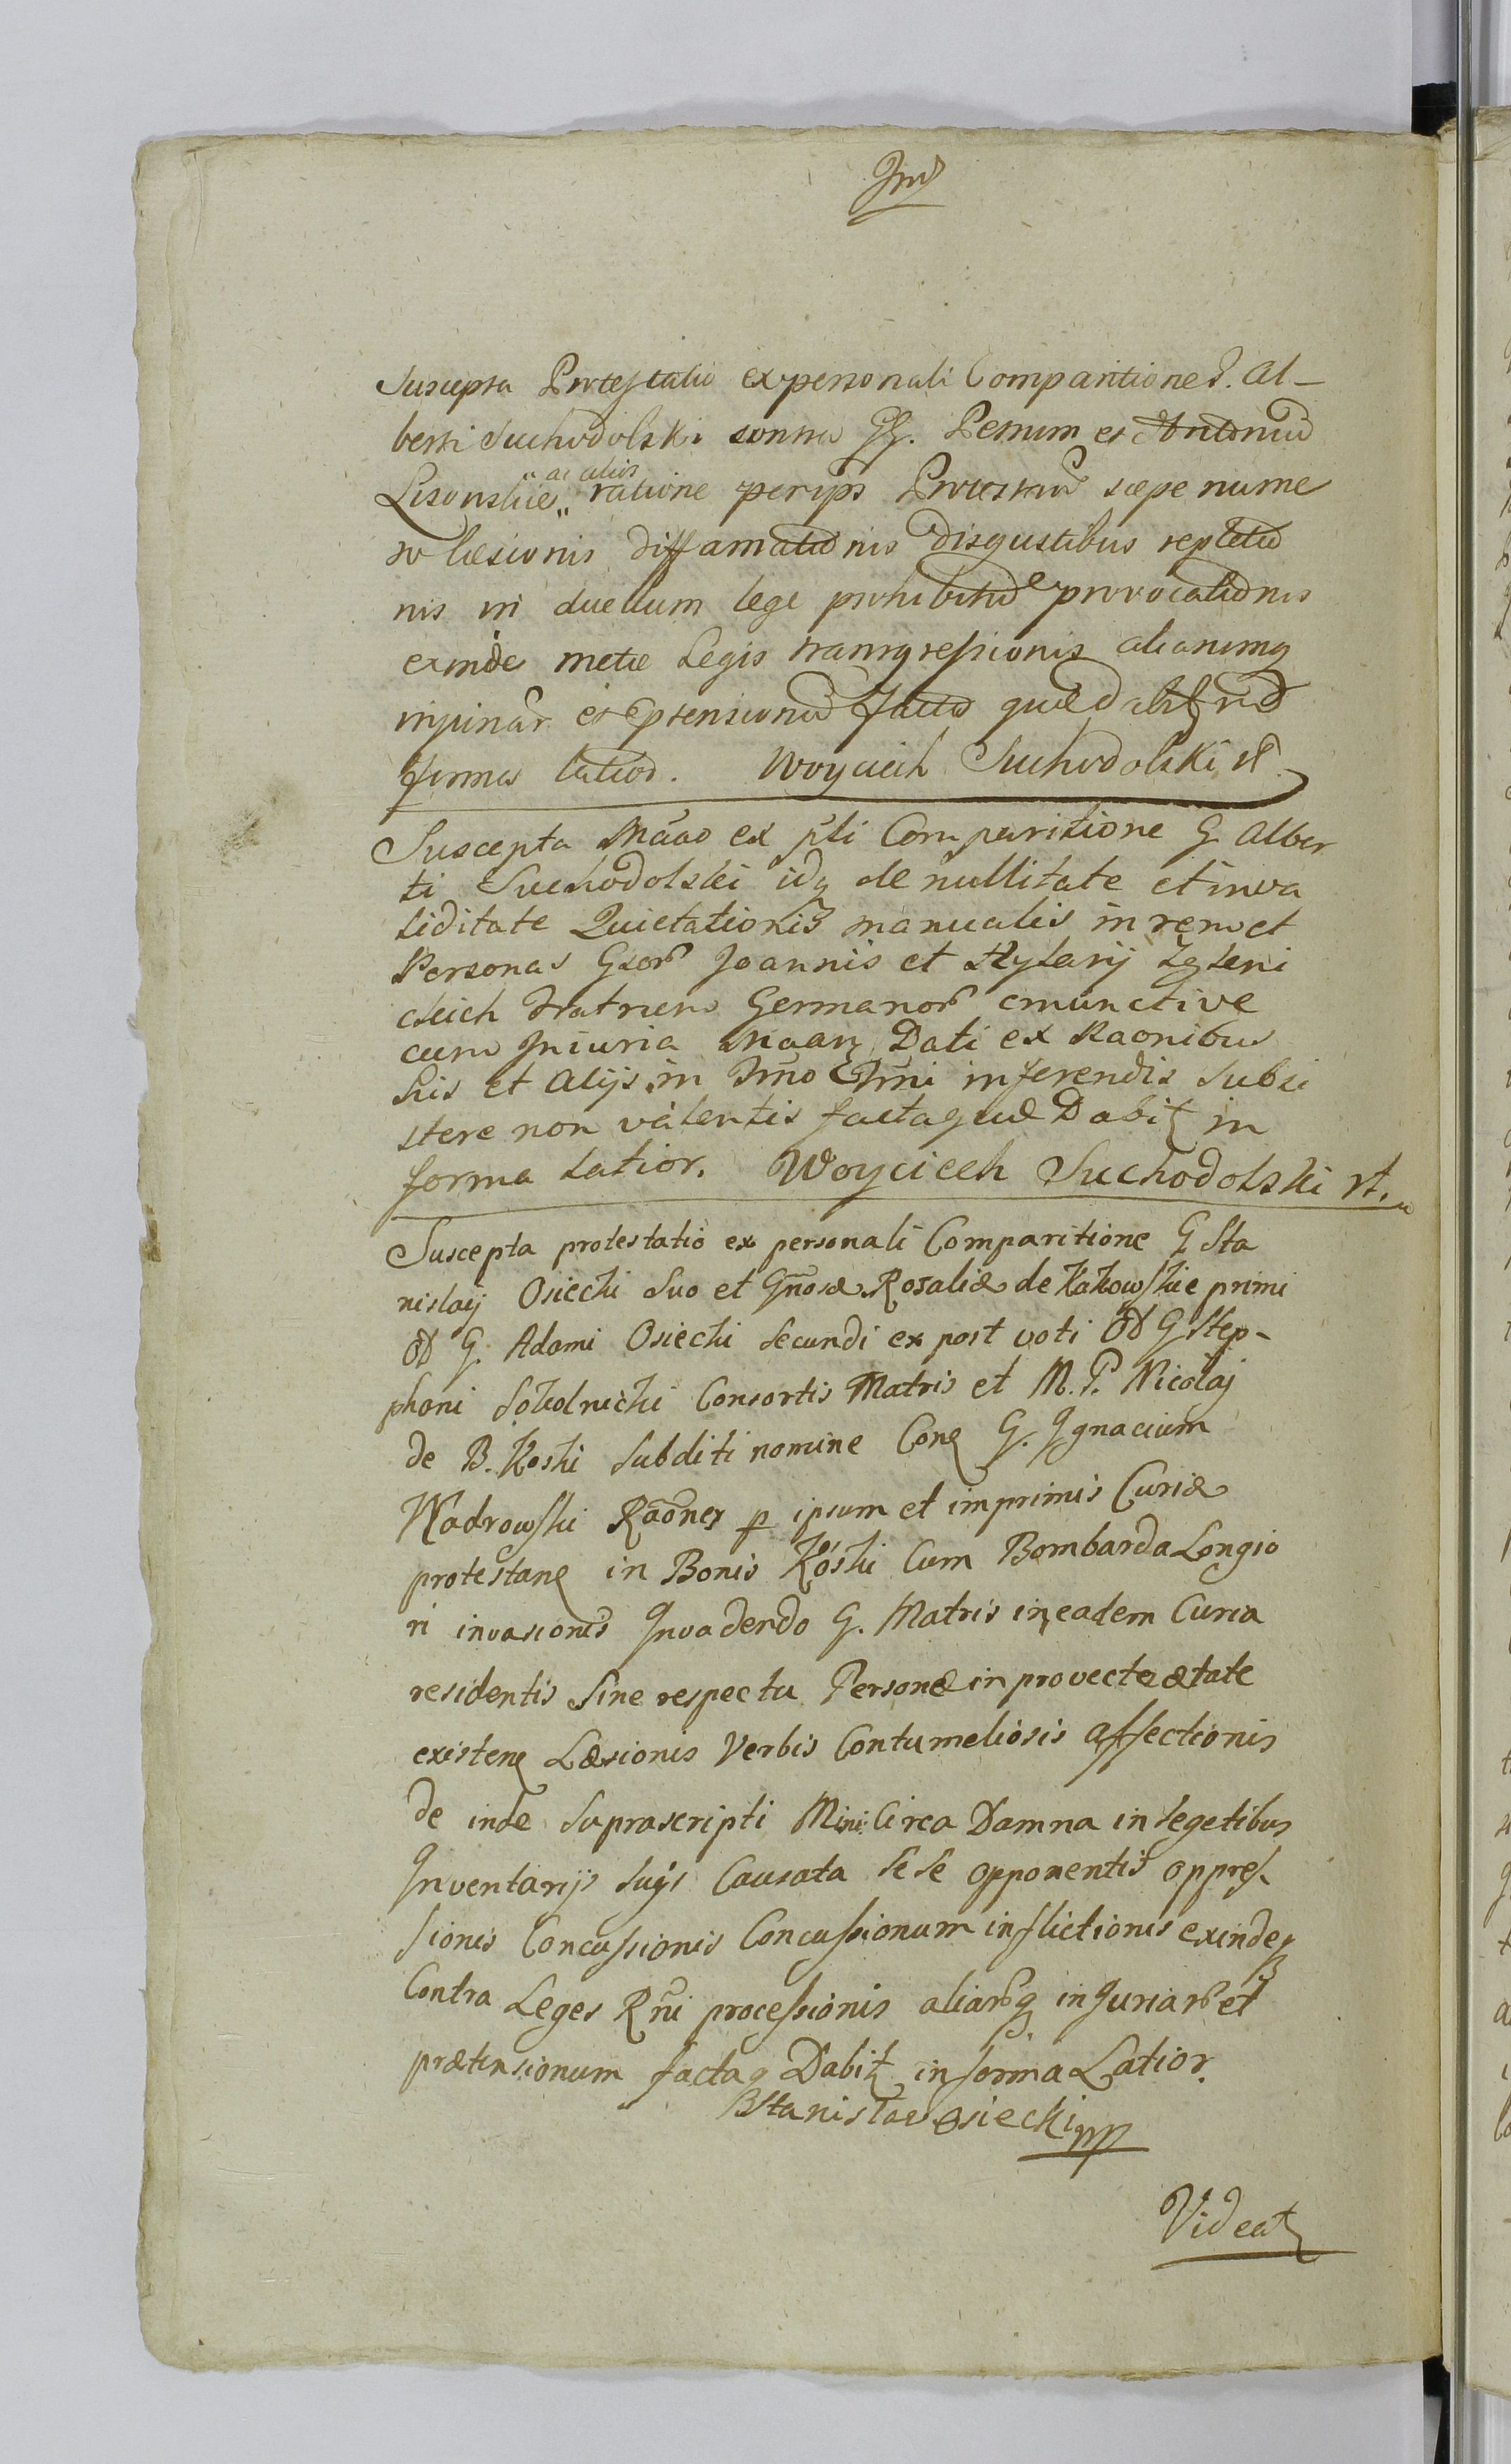 Suscepta Protestatio ex personali Comparitione G. Al-
berti Suchodolski contra GG. Petrum et Antonium
Lisowskie " ac alios " ratione per ipsos sæpe nume
ro læsionis diffamationis disgustibus repletio
nis in duellum lege prohibitum provocationis
exinde metæ Legis transgressionis aliarumq
injuriar et prtensionum facta quæ dabitur
forma latior. Woyciech Suchodolski
Suscepta Mãao ex pñli Comparitione G. Alber
ti Suchodolski idq de nullitate et inva
liditate Quietationis manualis in rem et
Personas Gser Joannis et Hylarij
ckich Fratrum Germanor emunctive
cum Iniuria Maan Dati ex Raonibus
his et Alijs in Tmno Tmni inferendis subsi
stere non valentis facta quæ Dabit in
forma latior. Woyciech Suchodolski
Suscepta protestatio ex personali Comparitione G Sta
nislaij Osiecki Suo et Gnosæ Rosaliæ de Kakowskie primi
G. Adami Osiecki Secundi ex post voti G Step-
phani Sokolnicki Consortis Matris et M. P. Nicolaj
de B. Koski Subditi nomine Con G. Ignacium
Nadrowski Raõner p ipsum et imprimis Curiæ
protestan in Bonis Koski Cum Bombarda Longio
ri invasionis Invadendo G. Matris in eadem Curia
residentis Sine respectu Personæ in provecta ætate
existen Læsionis Verbis Contumeliosis affectionis
de inde Suprascripti Mini: Circa Damna in Segetibus
Inventarijs Suis Causata Se Se opponentis oppres-
sionis Concussionis Concussionum inflictionis exindeq
Contra Leges Rni processionis aliarq injuriar et
prætensionum factaq Dabit in forma Latior.
Stanisław Osiecki mpp
Videat